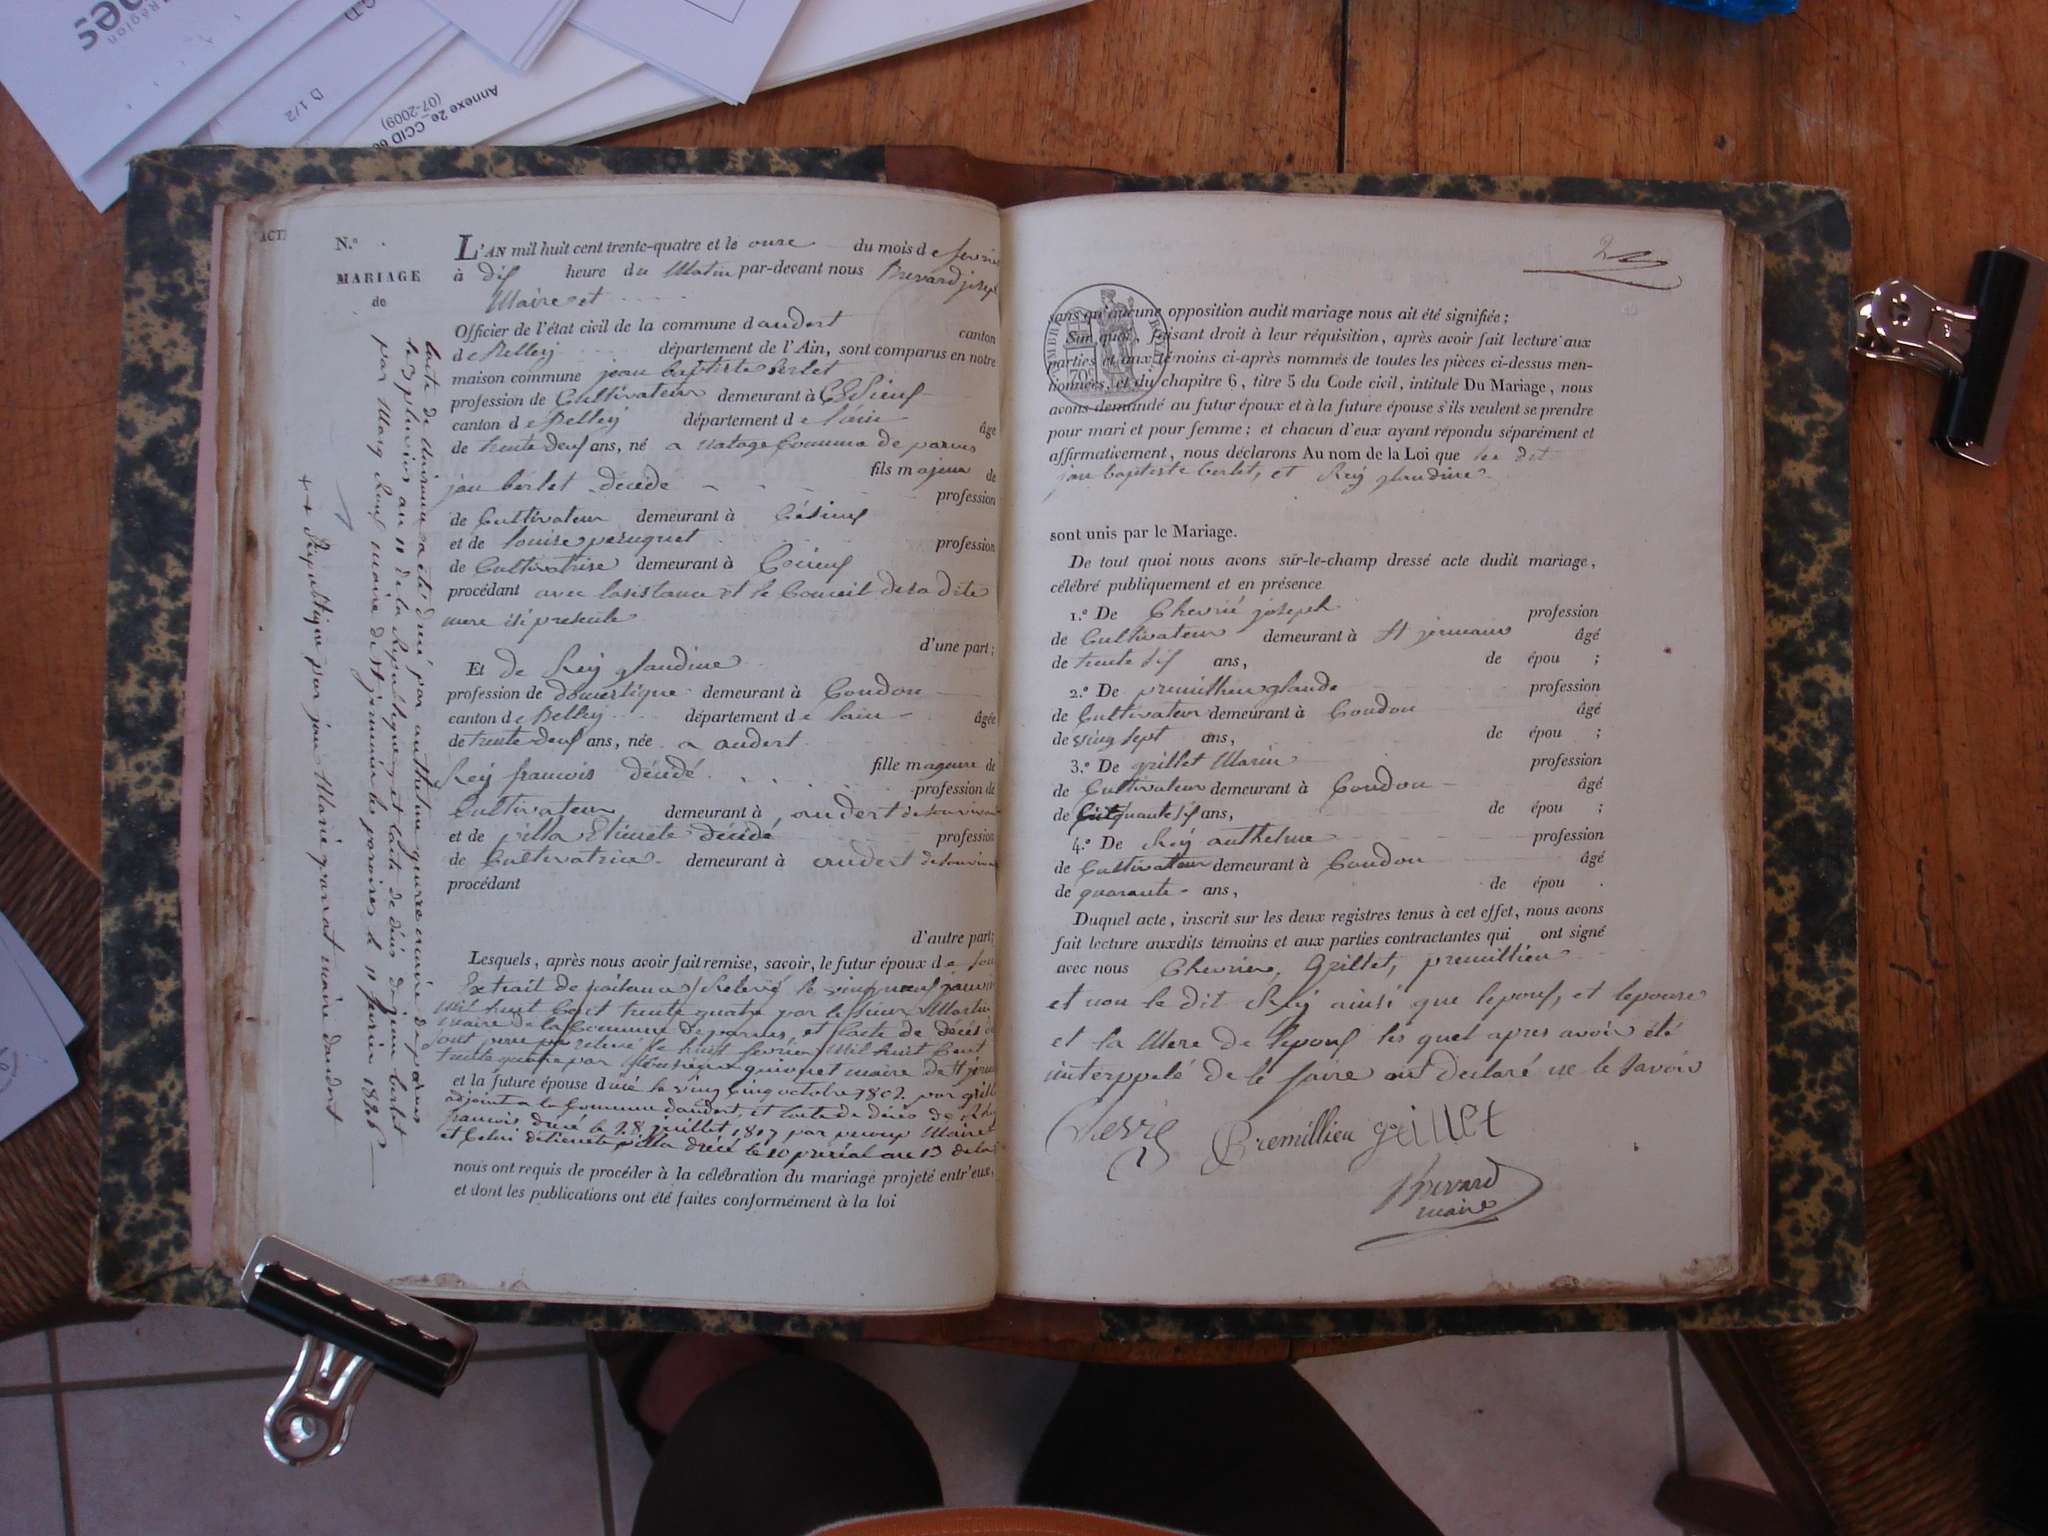 Région
Annexe 2e_CCID
(07-2009)
D 1/2
ACT
N.º
MARIAGE
de
L'AN mil huit cent trente-quatre et le onze du mois de fevrier
à dis heure du Matin par-devant nous Brevard joseph
Maire et
Officier de l'état civil de la commune d'andert canton
de Belley département de l'Ain, sont comparus en notre
maison commune jean baptiste berlet
profession de Cultivateur demeurant à
canton de Belley département de l'ain âgé
de trente deuf ans, né a natage Commune de parves
fils majeur de
jean berlet décédé profession
de Cultivateur demeurant à
et de louise peruquet profession
de Cultivatrise demeurant à
procédant avec lasistance et le Conseil de sa dite
mere isi presente
d'une part;
Et de Rey glaudine
profession de domestique demeurant à Condon
canton de Belley département de lain âgée
de trente deuf ans, née a andert
fille mageure de
Rey francois décédé profession de
Cultivateur demeurant à andert de son vivant
et de pilla Etiennete décédé profession
de Cultivatrice demeurant à andert de son vivant
procédant
d'autre part;
Lesquels, après nous avoir fait remise, savoir, le futur époux de son
Extrait de naisance Relevé le vingt neuf janvier
Mil huit Cent trente quatre par le sieur Martin
maire de la Commune de parves, et lacte de décès de
sont pere relevé le huit fevrier Mil huit Cent
trente quatre par Monsieur maire de St
et la future épouse du né le vingt cinq octobre 1802 par grillet
adjoint a la Commune dandert, et lacte de décès de Rey
francois dressé le 28 juillet 1807 par Maire
et Celui detienete pilla dressé le 10 prerial an 13 de la
nous ont requis de procéder à la célébration du mariage projeté entr'eux,
et dont les publications ont été faites conformément à la loi
lacte de naisance a été dressé par anthelme maire de parves
le 27 pluviose an 11 de la Republique, et lacte de décès de jean berlet
par Marq maire de St germain les paroises le 11 fevrier 1826
++ Republique par jean Marie maire dandert
2
TIMBRE ROYAL
70
sans qu'aucune opposition audit mariage nous ait été signifiée;
Sur quoi, faisant droit à leur réquisition, après avoir fait lecture aux
parties et aux témoins ci-après nommés de toutes les pièces ci-dessus men-
tionnées, et du chapitre 6, titre 5 du Code civil, intitulé Du Mariage, nous
avons demandé au futur époux et à la future épouse s'ils veulent se prendre
pour mari et pour femme; et chacun d'eux ayant répondu séparément et
affirmativement, nous déclarons Au nom de la Loi que les dit
jean baptiste berlet, et Rey glaudine
sont unis par le Mariage.
De tout quoi nous avons sur-le-champ dressé acte dudit mariage,
célébré publiquement et en présence
1.º De Chevrié joseph profession
de Cultivateur demeurant à St jermain âgé
de trente sis ans, de épou ;
2.º De premillieu glaude profession
de Cultivateur demeurant à Condon âgé
de ving sept ans, de épou ;
3.º De grillet Marin profession
de Cultivateur demeurant à Condon âgé
de Cinquante sis ans, de épou ;
4.º De Rey anthelme profession
de Cultivateur demeurant à Condon âgé
de quarante ans, de épou .
Duquel acte, inscrit sur les deux registres tenus à cet effet, nous avons
fait lecture auxdits témoins et aux parties contractantes qui ont signé
avec nous Chevrier, Grillet, premillieu
et non le dit Rey ainsi que lepous, et lepouse
et la Mere de lepous les quel apres avoir été
interppelé de le faire ont déclaré ne le savoir
Chevrie Premillieu grillet
Brevard
maire